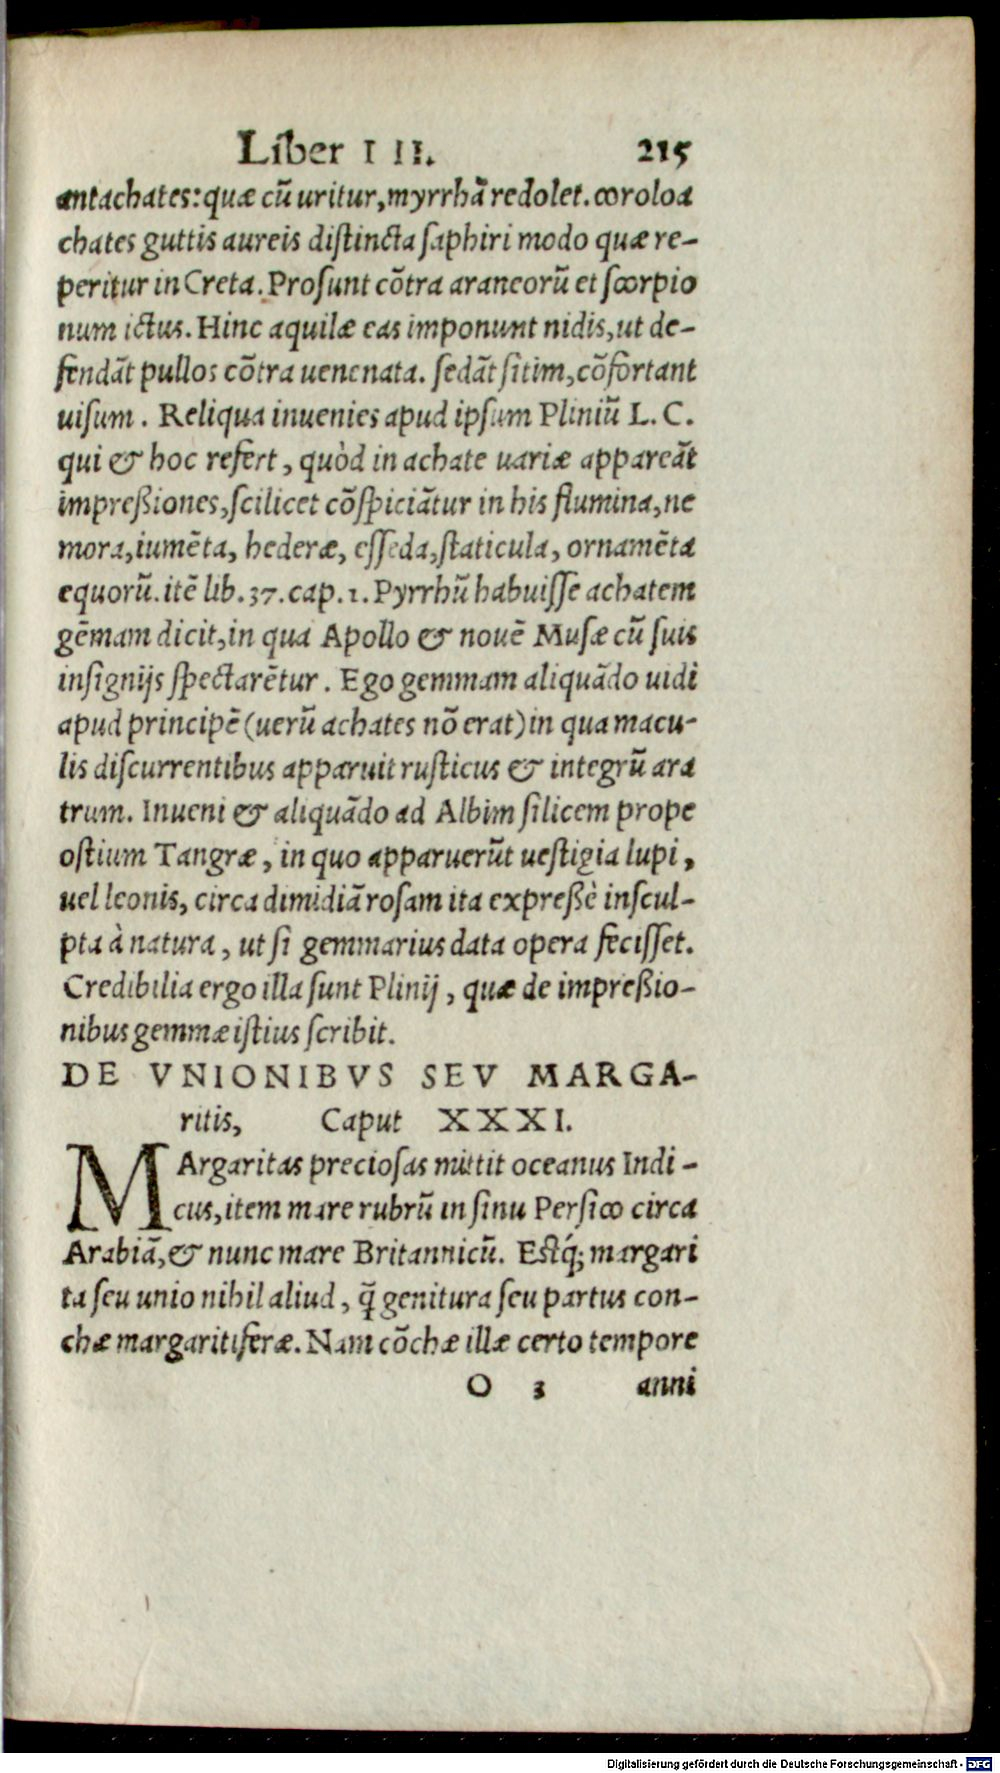 Liber III. 215
antachates: quæ cũ uritur, myrrhã redolet. coroloa
chates guttis aureis distincta saphiri modo quæ re-
peritur in Creta. Prosunt cõtra araneorũ et scorpio
num ictus. Hinc aquilæ eas imponunt nidis, ut de-
fendãt pullos cõtra uenenata. sedãt sitim, cõfortant
uisum. Reliqua inuenies apud ipsum Pliniũ L. C.
qui & hoc refert, quòd in achate uariæ appareãt
impreßiones, scilicet cõspiciãtur in his flumina, ne
mora, iumẽta, hederæ, esseda, staticula, ornamẽta
equorũ. itẽ lib. 37. cap. 1. Pyrrhũ habuisse achatem
gẽmam dicit, in qua Apollo & nouẽ Musæ cũ suis
insignijs spectarẽtur. Ego gemmam aliquãdo uidi
apud principẽ (uerũ achates nõ erat) in qua macu-
lis discurrentibus apparuit rusticus & integrũ ara
trum. Inueni & aliquãdo ad Albim silicem prope
ostium Tangræ, in quo apparuerũt uestigia lupi,
uel leonis, circa dimidiã rosam ita expreßè inscul-
pta à natura, ut si gemmarius data opera fecisset.
Credibilia ergo illa sunt Plinij, quæ de impreßio-
nibus gemmæ istius scribit.
DE VNIONIBVS SEV MARGA-
ritis, Caput XXXI.
MArgaritas preciosas mittit oceanus Indi-
cus, item mare rubrũ in sinu Persico circa
Arabiã, & nunc mare Britannicũ. Estq́; margari
ta seu unio nihil aliud, q̃ genitura seu partus con-
chæ margaritiferæ. Nam cõchæ illæ certo tempore
O 3 anni
Digitalisierung gefördert durch die Deutsche Forschungsgemeinschaft - DFG